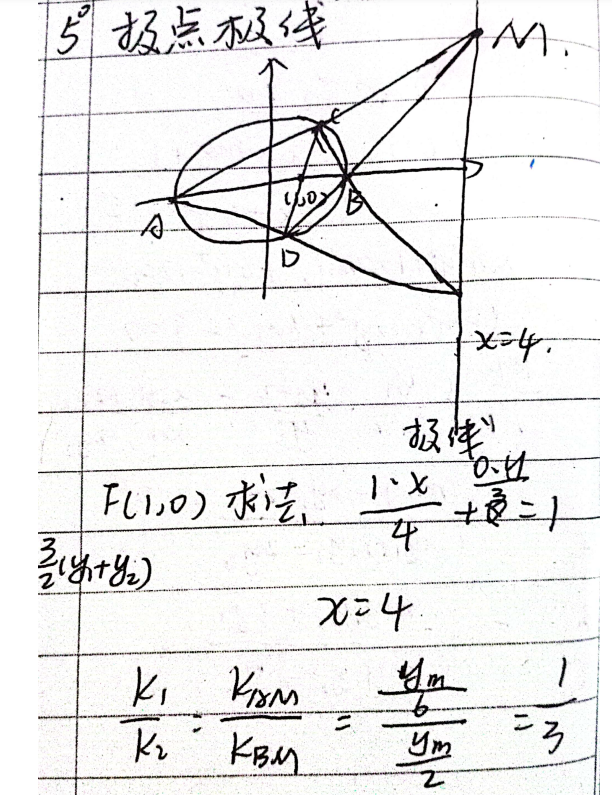 5° 极点极线
M.
C
(1,0)
A
B
D
x=4.
极线"
F(1,0) 求法, 1·x/4 + 0·y/3 = 1
3/2(y₁+y₂)
x=4
K₁/K₂ = K_AM/K_BM = (y_m/6)/(y_m/2) = 1/3